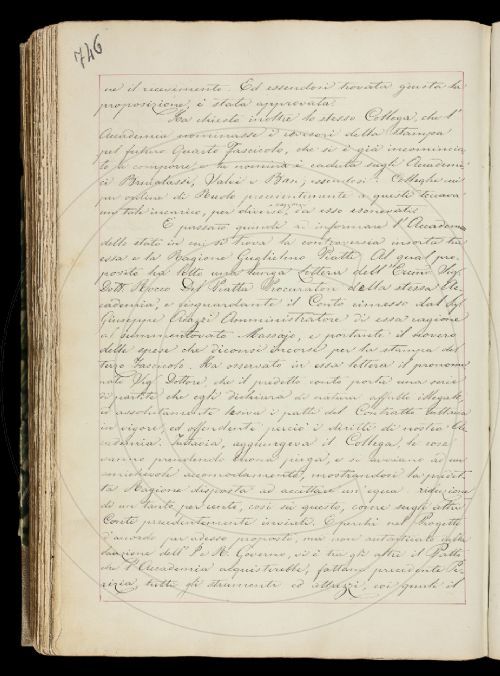 746
ne il ricevimento. Ed essendosi trovata giusta la
proposizione, è stata approvata.
Ha chiesto inoltre lo stesso Collega, che l'
Accademia nominasse i revisori della Stampa
pel futuro Quarto Fascicolo, che si è già incomincia
to a comporre, e la nomina è caduta sugli Accademi
ci Brugnatelli, Valvi e Ban; essendosi i Colleghi cui
per ordine di Ruolo precisamente a questi toccava
un tale incarico, per diverse ragioni da esso esonerati.
È passato quindi ad informare l'Accademia
dello stato in cui si trova la controversia insorta tra
essa e la Ragione Guglielmo Piatti. Al qual pro
posito ha letto una lunga Lettera dell'Ecc.mo Sig.
Dott. Rocco Del Piatta Procurator della stessa Ac
cademia, e risguardante il Conto rimesso dal Sig.
Giuseppe Ajazzi Amministratore di essa ragione
al summentovato Massajo, e portante il novero
delle spese che diconsi incorse per la stampa del
terzo Fascicolo. Ha osservato in essa lettera il prenomi
nato Sig. Dottore, che il predetto conto porta una serie
di partite che egli dichiara di natura affatto illegale,
ed assolutamente lesiva i patti del Contratto tuttavia
in vigore, ed offendente perciò i diritti di nostra Ac
cademia. Tuttavia, aggiungeva il Collega, le cose
vanno prendendo buona piega, e si avviano ad un
amichevole accomodamento, mostrandosi la predet
ta Ragione disposta ad accettare un'equa riduzione
di un tanto per cento, così su questo, come sugli altri
Conti precedentemente inviati. E perché nel Progetto
d'accordo per adesso proposto, ma non autenticato dalla
sanzione dell'I. e R. Governo, vi è tra gli altri il Patto
che l'Accademia acquisterebbe, fattane precedente Pe
rizia, tutti gli strumenti ed attrazzi, coi quali il